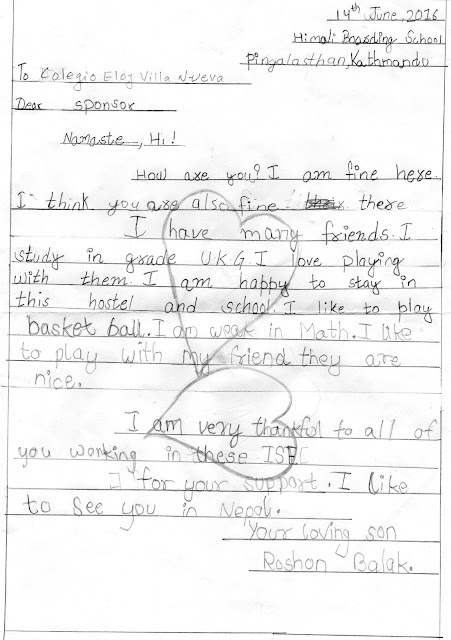 14th June, 2016
Himali Boarding School
Pingalasthan, Kathmandu
To Colegio Eloy Villa Nueva
Dear sponsor
Namaste, Hi!
How are you? I am fine here.
I think you are also fine there
I have many friends. I
study in grade U.K.G I love playing
with them. I am happy to stay in
this hostel and school. I like to play
basket ball. I am weak in Math. I like
to play with my friend they are
nice.
I am very thankful to all of
you working in these ISFI
I for your support. I like
to see you in Nepal.
Your loving son
Roshon Balak.